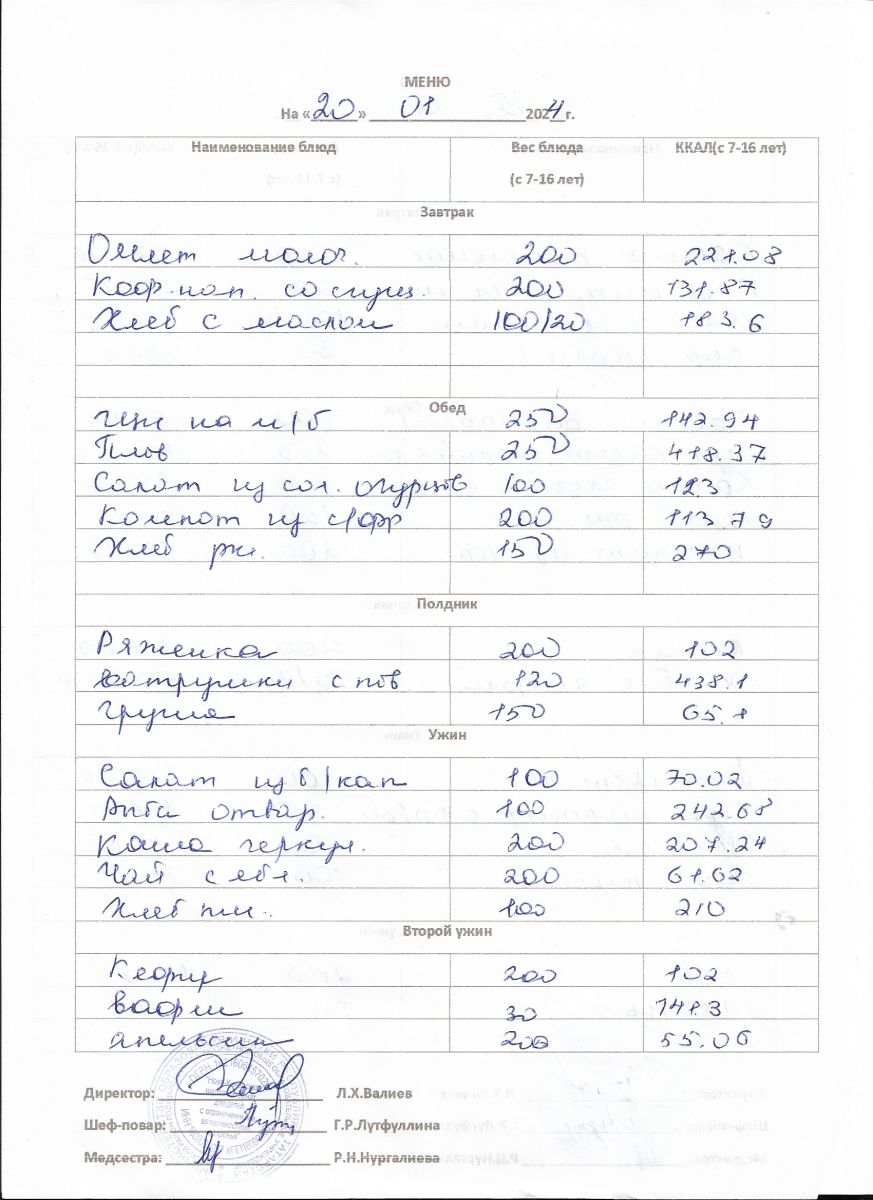 МЕНЮ
На «20» 01 2024 г.
Наименование блюд Вес блюда (с 7-16 лет) ККАЛ(с 7-16 лет)
Завтрак
Омлет молоч. 200 221.08
Коф. нап. со сгущ. 200 131.87
Хлеб с маслом 100/20 183.6
Обед
Щи на м/б 250 142.94
Плов 250 418.37
Салат из сол. огурцов 100 123
Компот из с/фр 200 113 79
Хлеб рж. 150 270
Полдник
Ряженка 200 102
ватрушки с пов 120 438.1
Груша 150 65.1
Ужин
Салат из б/кап 100 70.02
Рыба отвар. 100 242.68
Каша геркул. 200 207.24
Чай с ябл. 200 61.62
Хлеб пш. 100 210
Второй ужин
Кефир 200 102
вафли 30 141.3
апельсин 200 55.06
Директор: Л.Х.Валиев
Шеф-повар: Г.Р.Лутфуллина
Медсестра: Р.Н.Нургалиева